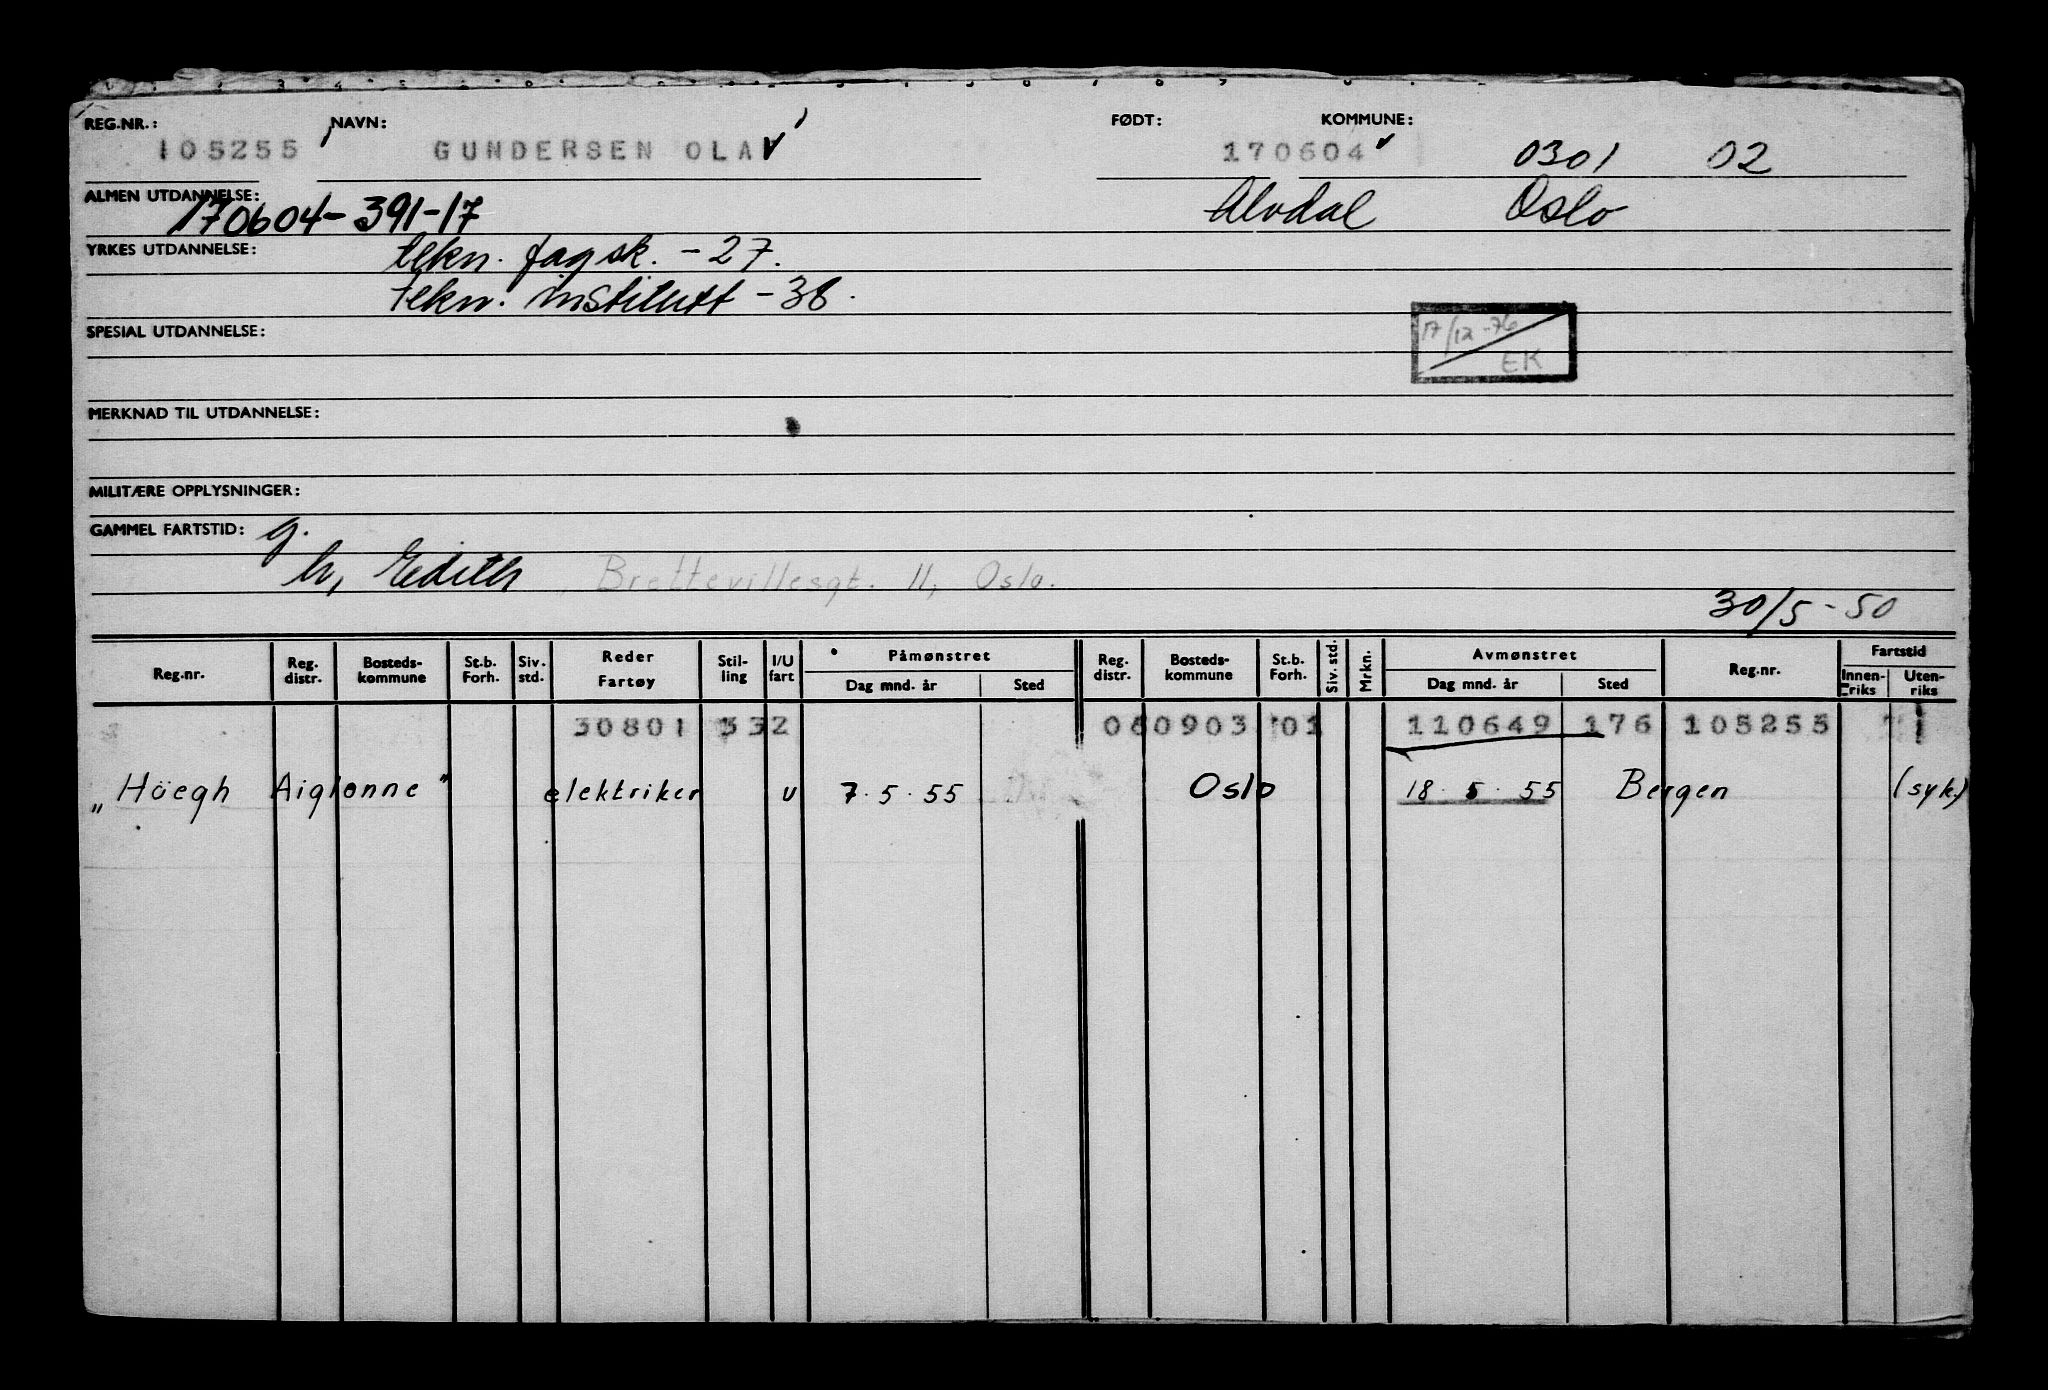 REG.NR.: NAVN: FØDT: KOMMUNE:
105255 GUNDERSEN OLAV 170604 0301 02
ALMEN UTDANNELSE: 170604-391-17 Alvdal Oslo
YRKES UTDANNELSE: tekn. fagsk. - 27.
tekn. institutt - 38.
SPESIAL UTDANNELSE: 17/12-76
EK
MERKNAD TIL UTDANNELSE:
MILITÆRE OPPLYSNINGER:
GAMMEL FARTSTID: g.
h, Edith, Brettevillesgt. 11, Oslo.
30/5-50
Reg.nr. Reg. distr. Bosteds- kommune St.b. Forh. Siv. std. Reder Fartøy Stil- ling I/U fart Påmønstret Dag mnd. år Sted Reg. distr. Bosteds- kommune St.b. Forh. Siv. std. Mrkn. Avmønstret Dag mnd. år Sted Reg.nr. Fartstid Innen- riks Uten- riks
30801 332 060903 01 110649 176 105255
"Höegh Aiglonne" elektriker u 7.5.55 Oslo 18.5.55 Bergen (syk.)